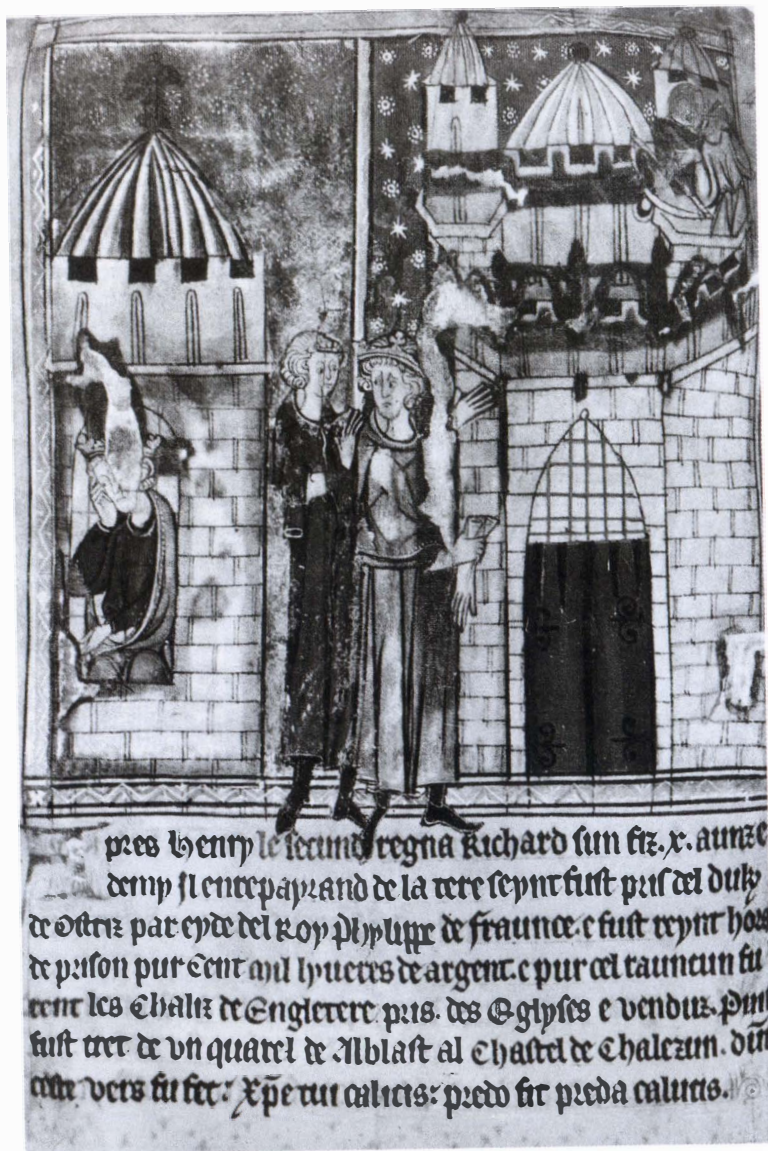 pres Henry le secund regna Richard sun fiz. x. aunz e
demy Il entrepayrand de la tere seynt fust pris del duk
de Ostriz par eyde del Roy Phylippe de fraunce. e fust reynt hors
de prison pur Cent mil lyueres de argent. e pur cel rauncun fu
rent les Chaliz de Engletere pris. des Eglyses e venduz.
fust tret de vn quarel de Alblast al Chastel de Chalezun.
ceste vers fu fet: Xp̄e tui calicis: predo fit preda calucis.